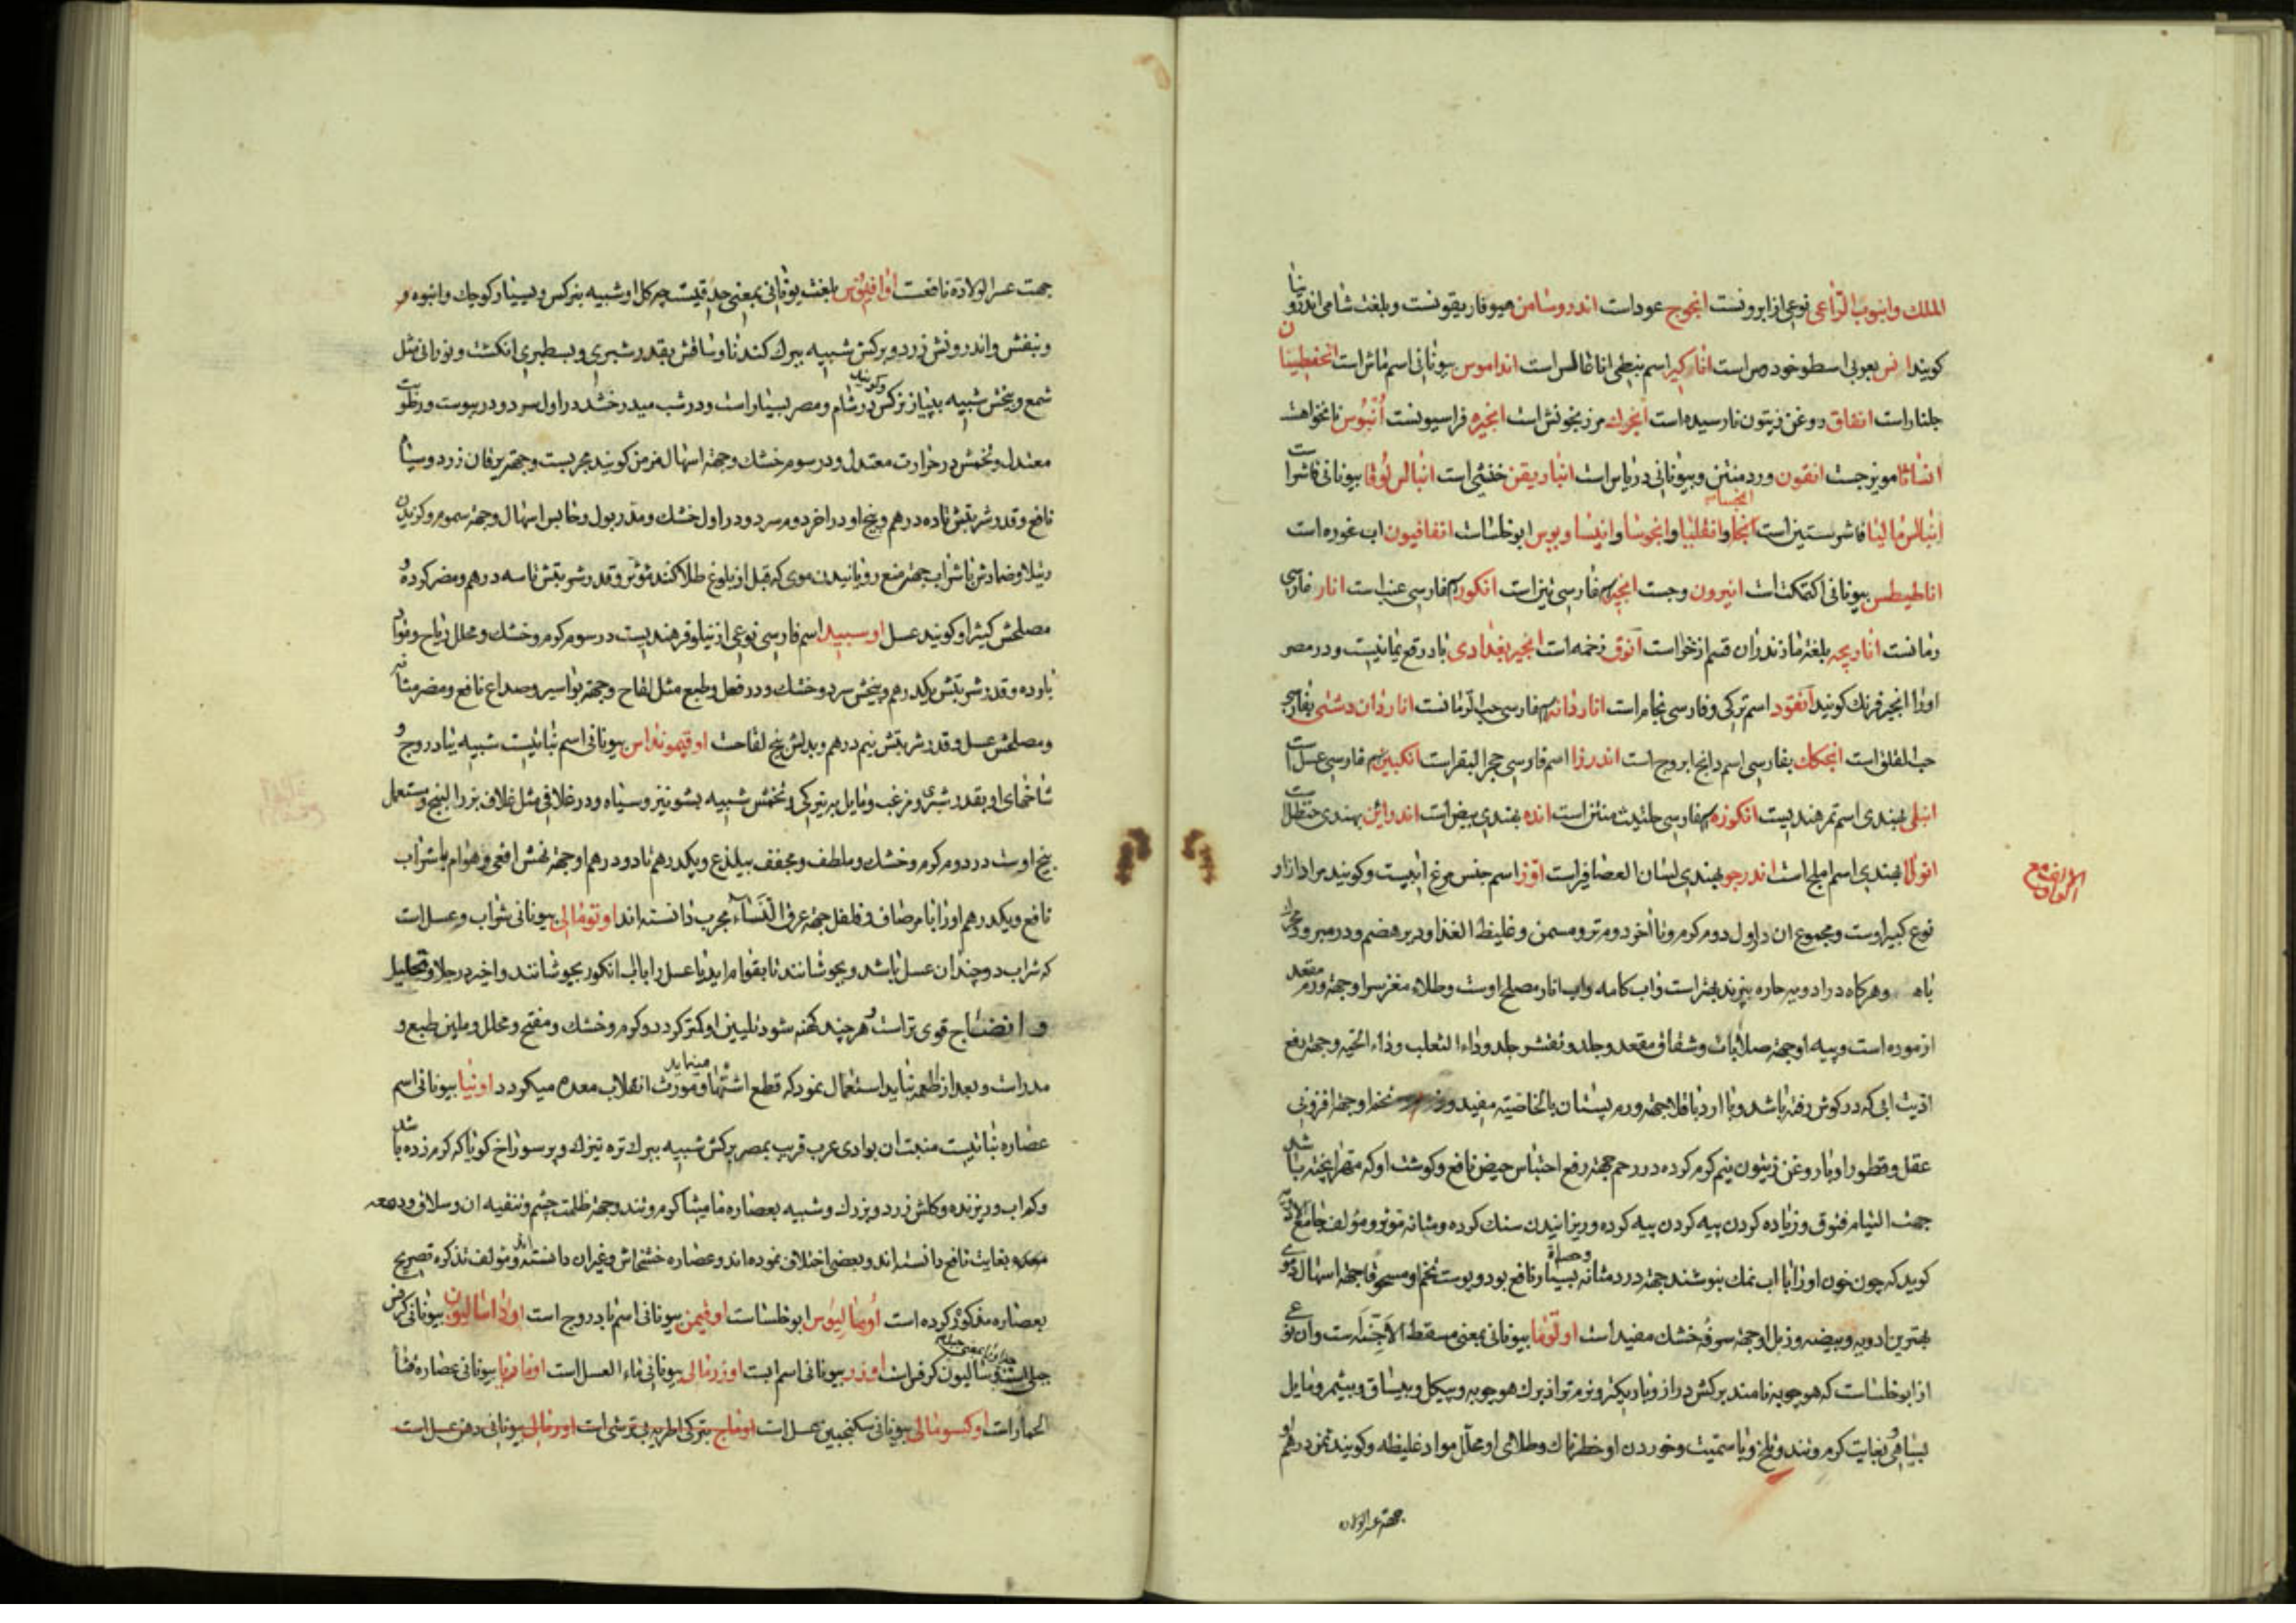 الملك وانبوب الراعی نوعی از ابرونست انجوج عود است اندروسامن هیوفاریقونست و بلغت شامی اندرونیا
کویند انس بعربی اسطوخودوس است انارکیر اسم نبطی اناغالس است انداموس بیونانی اسم ماش است
جلنار است انفاق روغن زیتون نارسیده است انجرك مرزنجوش است انجره فراسیونست انبوس نانخواه است
انساثا مویزجست انفون ورد منتن و بیونانی دریاس است انباریقن خنثی است انبالس لوقا بیونانی فاشرا است
انبالس مالینا فاشرستین است انجا وانقلیا وانجوسا وانیسا ابوخلسا است انفافیون اب غوره است
اناطیطس بیونانی اکتمکت است انیرون وجست انجیر بفارسی تین است انکور بفارسی عنب است انار فارسی
رمانست اناریچه بلغة مازندران قسم ازخرا است انوق زخمه است انجیر بغدادی بادرقع یمانیست و در مصر
اورا انجیر فرنك کویند انقود اسم ترکی و فارسی نجام است اناردانه بفارسی حب الرمانست اناردان دشتی بفارسی
حب القلقل است انجکك بفارسی اسم دانج ابروج است اندرزا اسم فارسی حجر البقر است انکبین بفارسی عسل است
انبلی بهندی اسم تمر هندیست انکوزه بفارسی حلتیت منتن است انده بهندی بیض است اندراین بهندی حنظل است
انولا بهندی اسم املج است اندرجو بهندی لسان العصافیر است اوز اسم جنس مرغ ابیست و کویند مراد ازاو
الالف مع الواو
نوع کبیر اوست و مجموع ان در اول دوم کرم و تا اخر دوم تر و مسمن و غلیظ الغذا و دیر هضم و در مبرود محرك
باه و هرکاه در ادویه حاره بپزند بهتر است و اب کامه و اب انار مصلح اوست و طلاء مغز سر او جهة ورم مقعد
ازموده است و پیه او جهة صلابات و شقاق مقعد و جلد و تقشر جلد و داء الثعلب و داء الحیه و جهة رفع
اذیت ابی که در کوش رفته باشد و با ارد باقلا جهة ورم پستان بالخاصیة مفید و تخم او جهة افزونی
عقل و قطور او با روغن زیتون نیم کرم کرده در رحم جهة رفع احتباس حیض نافع و کوشت او که مهرا پخته باشد
جهت التیام فتوق و زیاده کردن پیه کرده و ریزانیدن سنك کرده و مثانه موثر و مولف جامع الادویه
کوید که چون خون اورا با اب نمك بنوشند جهة درد مثانه و حصاة بسیار نافع بود و پوست تخم او مسحوقا جهة اسهال دموی
بهترین ادویه و بیضه و زبل او جهة سرفه خشك مفید است اونوما بیونانی بمعنی مسقط الاجنه است و ان نوعی
از ابوخلسا است که هوجوبه نامند برکش دراز و باریکتر و نرم تر از برك هوجوبه و بیکل و بیساق و بیثمر و مایل
بسیاهی و بغایت کرم و تند و تلخ و با سمیت و خوردن او خطرناك و طلای او محلل مواد غلیظه و کویند نیم درهم او
جهة عسر الولاده
جهت عسر الولادة نافعت اوافینوس بلغت یونانی بمعنی حدقیست چه کل او شبیه بنرکس و بسیار کوچك و انبوه و
و بنفش و اندرونش زرد و برکش شبیه ببرك کندنا و ساقش بقدر شبری و بسطبری انکشت و نورانی مثل
شمع و بیخش شبیه بپیاز نرکس و کویند در شام و مصر بسیار است و در شب میدرخشد در اول سرد و در یبوست و رطوبت
معتدل و تخمش در حرارت معتدل و در سوم خشك و جهة اسهال مزمن کویند مجربست و جهة یرقان زرد و سیاه
نافع و قدر شربتش تا ده درهم و بیخ او در اخر دوم سرد و در اول خشك و مدر بول و حابس اسهال و جهة سموم و کزیدن
رتیلا و ضمادش با شراب جهة منع رویانیدن موی که قبل از بلوغ طلا کنند موثر و قدر شربتش تا سه درهم و مضر کرده و
مصلحش کثیرا و کویند عسل اوسبید اسم فارسی نوعی از نیلوفر هندیست در سوم کرم و خشك و محلل ریاح و مواد
بارده و قدر شربتش یکدرهم و بیخش سرد و خشك و در فعل و طبع مثل لفاح و جهة بواسیر و صداع نافع و مضر مثانه
و مصلحش عسل و قدر شربتش نیم درهم و بدلش بیخ لفاحت اوقیموئداس بیونانی اسم نباتیست شبیه ببادروج و
شاخهای او بقدر شبری و مزغب و مایل بتیرکی و تخمش شبیه بشونیز و سیاه و در غلافی مثل غلاف بزر البنج و مستعمل
بیخ اوست در دوم کرم و خشك و ملطف و مجفف بیلذع و یکدرهم تا دو درهم او جهة نهش افعی و هوام با شراب
نافع و یکدرهم اورا با مر صاف و فلفل جهة عرق النساء مجرب دانسته اند اونومالی بیونانی شراب و عسل است
که شراب دو چندان عسل باشد و بجوشانند تا بقوام اید یا عسل را با اب انکور بجوشانند و اخیر در جلا و تحلیل
و انضاج قوی تر است و هرچند کهنه شود تلیین او کمتر کردد و کرم و خشك و مفتح و محلل و ملین طبع و
مدر است و بعد از طعام نباید استعمال نمود که قطع اشتها مینماید و مورث انقلاب معده میکردد اونیا بیونانی اسم
عصاره نباتیست منبت ان بوادی عرب قریب بمصر برکش شبیه ببرك تره تیزك و پر سوراخ کویا که کرم زده باشد
و کم اب و ریزنده و کلش زرد و بزرك و شبیه بعصاره مامیثا کرم و تند و جهة ظلمت چشم و تنقیه ان و سلاق و دمعه
بغایت نافع دانسته اند و بعضی اختلاف نموده اند و عصاره خشخاش و غیر ان دانسته اند و مولف تذکره تصریح
بعصاره مذکور کرده است اونمالیوس ابوخلسا است اوقیمن بیونانی اسم بادروج است اوراسالیون بیونانی کرفس
جبلی است و سالیون کرفس است اودر بیونانی اسم ابست اودرمالی بیونانی ماء العسل است اومامونیا بیونانی عصاره قثاء
الحمار است اوکسومالی بیونانی سکنجبین عسل است اوماج بترکی اطریه بی ترشی است اورمالی بیونانی دهن عسل است